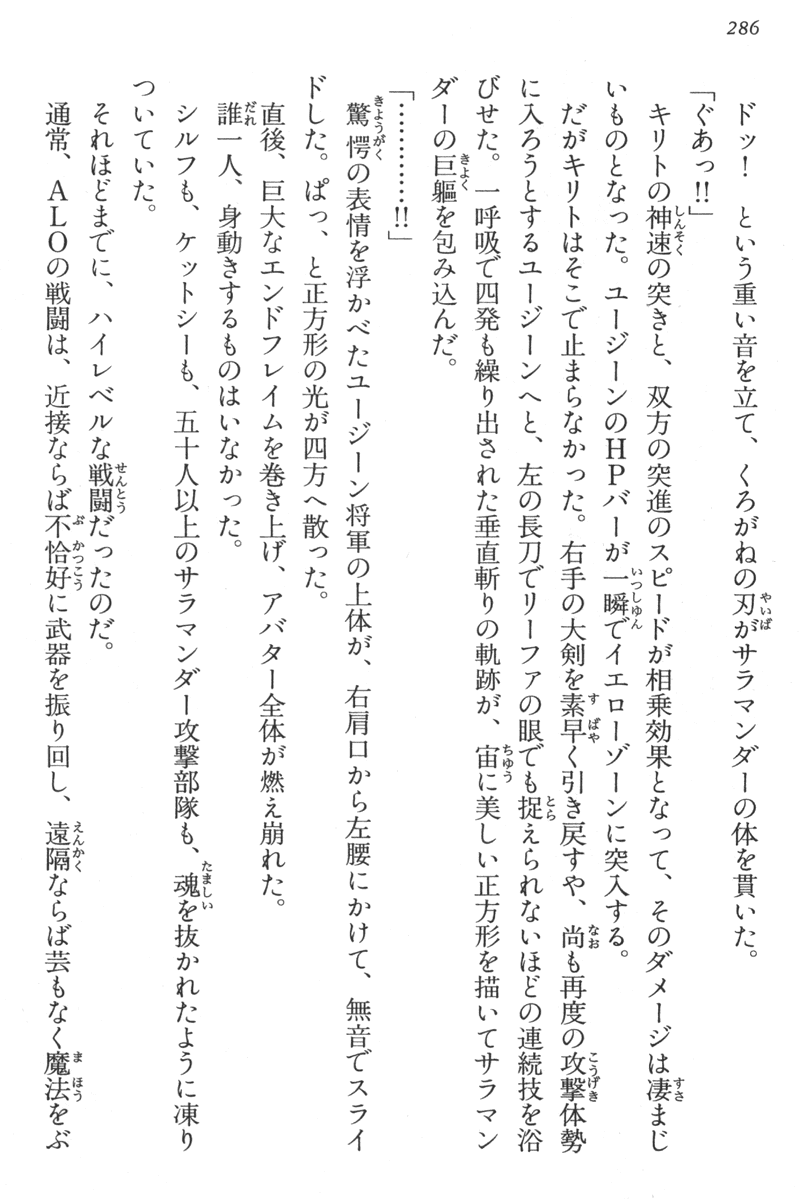 286
ドッ!　という重い音を立て、くろがねの刃がサラマンダーの体を貫いた。
「ぐあっ!!」
キリトの神速の突きと、双方の突進のスピードが相乗効果となって、そのダメージは凄まじ
いものとなった。ユージーンのHPバーが一瞬でイエローゾーンに突入する。
だがキリトはそこで止まらなかった。右手の大剣を素早く引き戻すや、尚も再度の攻撃体勢
に入ろうとするユージーンへと、左の長刀でリーファの眼でも捉えられないほどの連続技を浴
びせた。一呼吸で四発も繰り出された垂直斬りの軌跡が、宙に美しい正方形を描いてサラマン
ダーの巨軀を包み込んだ。
「…………!!」
驚愕の表情を浮かべたユージーン将軍の上体が、右肩口から左腰にかけて、無音でスライ
ドした。ぱっ、と正方形の光が四方へ散った。
直後、巨大なエンドフレイムを巻き上げ、アバター全体が燃え崩れた。
誰一人、身動きするものはいなかった。
シルフも、ケットシーも、五十人以上のサラマンダー攻撃部隊も、魂を抜かれたように凍り
ついていた。
それほどまでに、ハイレベルな戦闘だったのだ。
通常、ALOの戦闘は、近接ならば不恰好に武器を振り回し、遠隔ならば芸もなく魔法をぶ